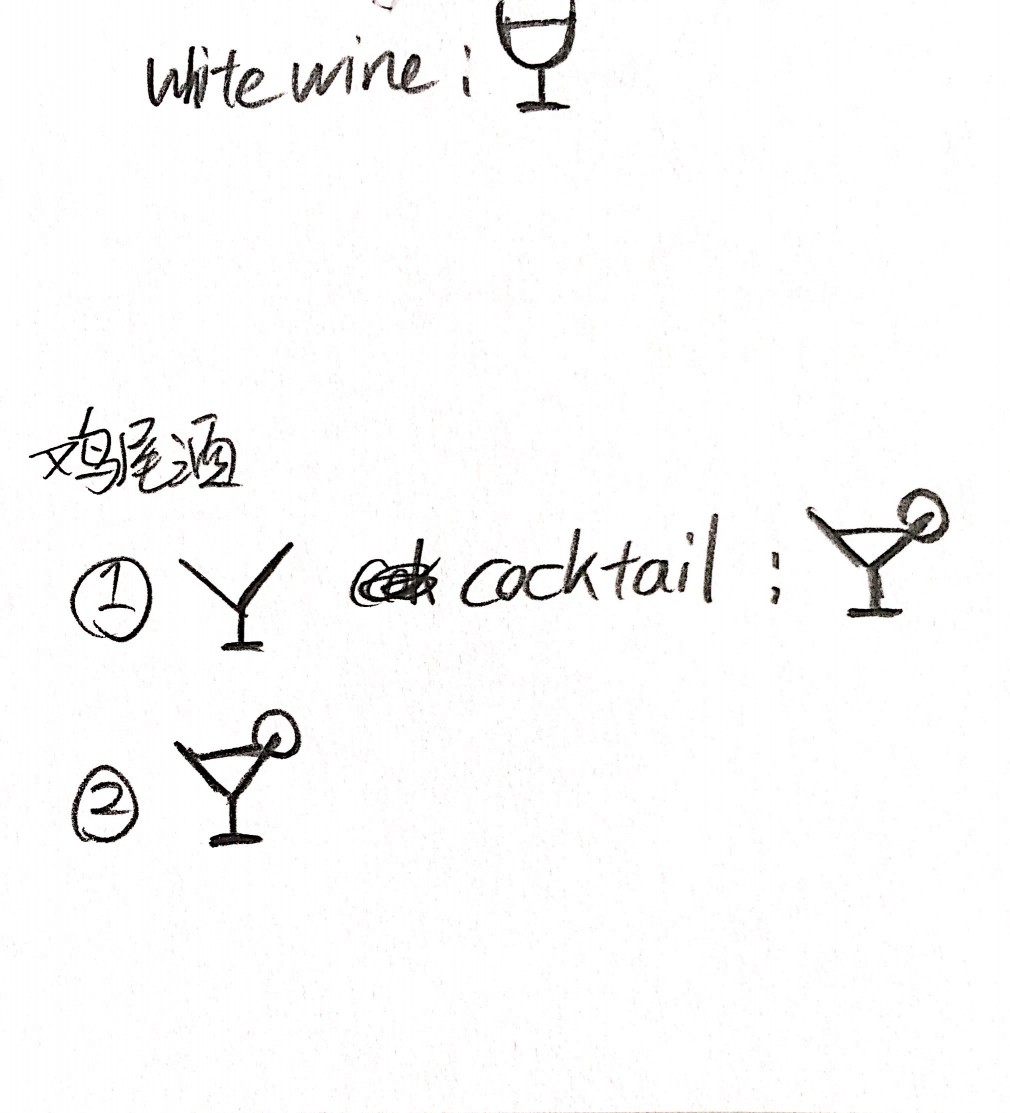 white wine :
鸡尾酒
① cocktail :
②